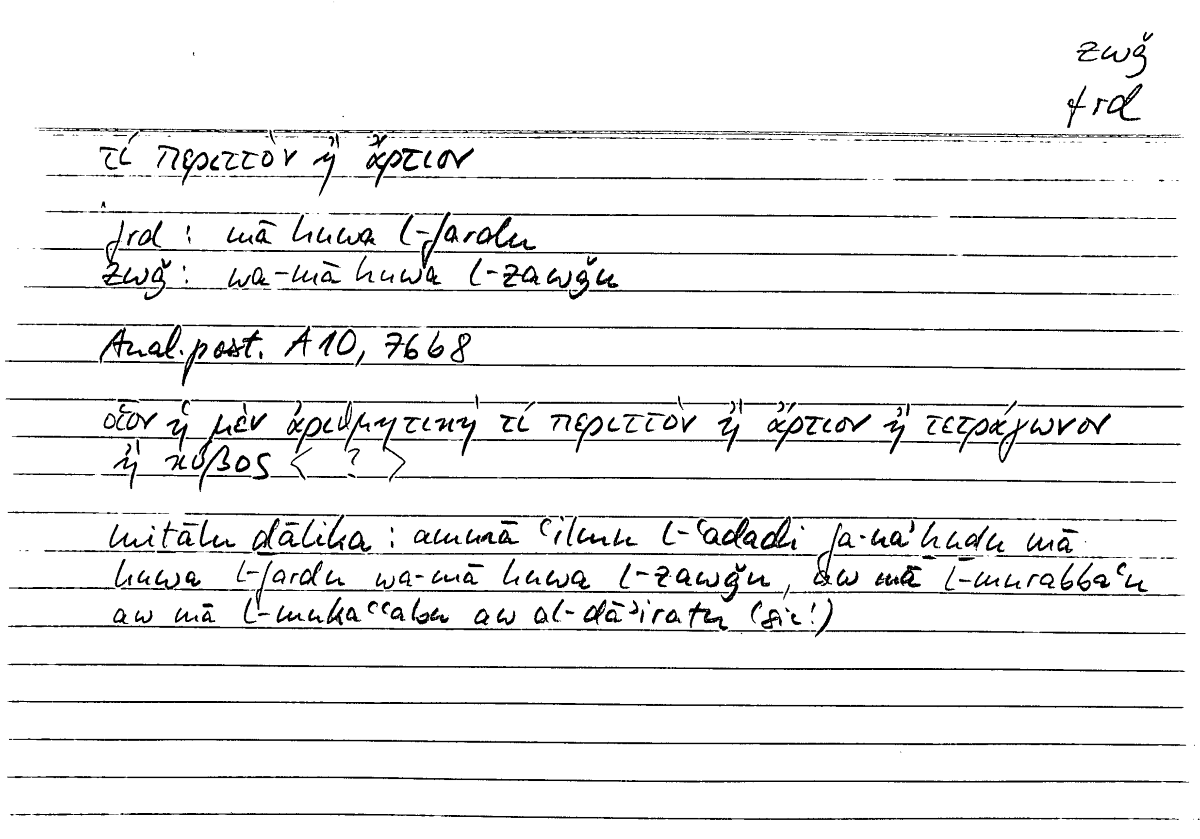 zwǧ
frd
τί περιττὸν ἢ ἄρτιον
frd : mā huwa l-fardu
zwǧ : wa-mā huwa l-zawǧu
Anal. post. A 10, 76b8
οἷον ἡ μὲν ἀριθμητικὴ τί περιττὸν ἢ ἄρτιον ἢ τετράγωνον
ἢ κύβος < ? >
mitālu dālika : ammā ʿilmu l-ʿadadi fa-naʾhudu mā
huwa l-fardu wa-mā huwa l-zawǧu, aw mā l-murabbaʿu
aw mā l-mukaʿʿabu aw al-dāʾiratu (sic!)